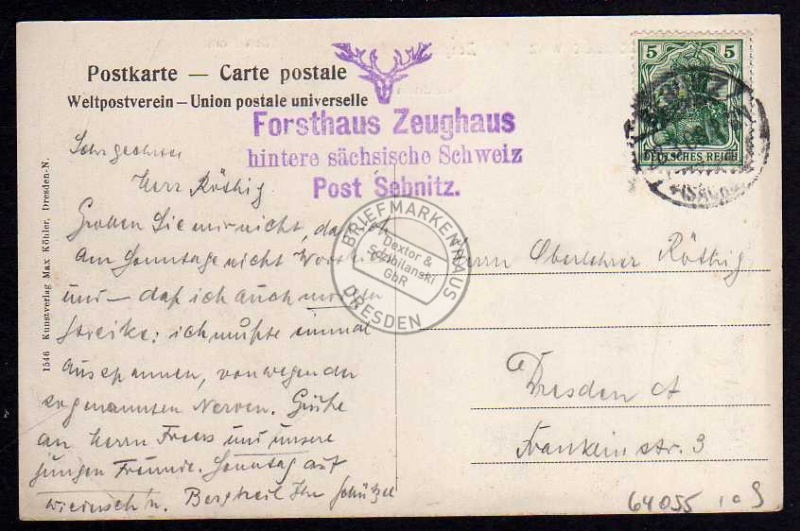 Postkarte — Carte postale
Weltpostverein – Union postale universelle
Forsthaus Zeughaus
hintere sächsische Schweiz
Post Sebnitz.
5 5
DEUTSCHES REICH
Sehr geehrter
Herr Röthig
Grollen Sie mir nicht, daß ich
am Sonntage nicht Wort
und – daß ich auch morgen
streike: ich mußte einmal
ausspannen, von wegen der
sogenannten Nerven. Grüße
an Herrn und unsere
jungen Freunde. Sonntag auf
Wiedersehn. Bergheil Ihr Schützel
Herrn Oberlehrer Röthig
Dresden A
Frankleinstr. 3
1546 Kunstverlag Max Köhler, Dresden-N.
BRIEFMARKENHAUS
Dextor &
Szabilanski
GbR
DRESDEN
64055 109